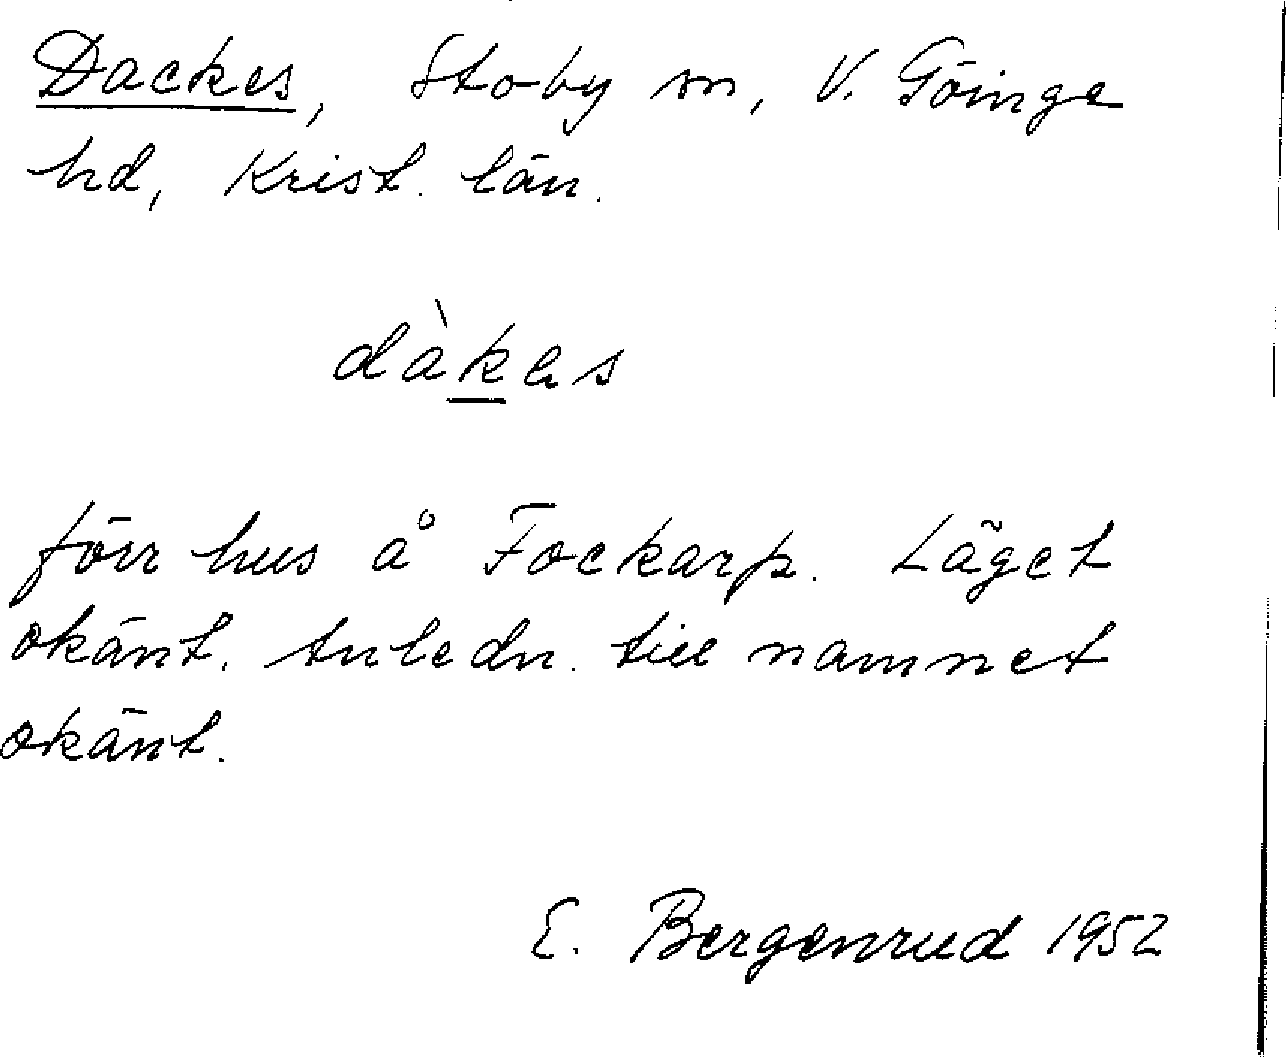 Dackes, Stoby sn, V. Göinge
hd, Krist. län.
dàkas
förr hus å Fockarp. Läget
okänt. Anledn. till namnet
okänt.
E. Bergenrud 1952